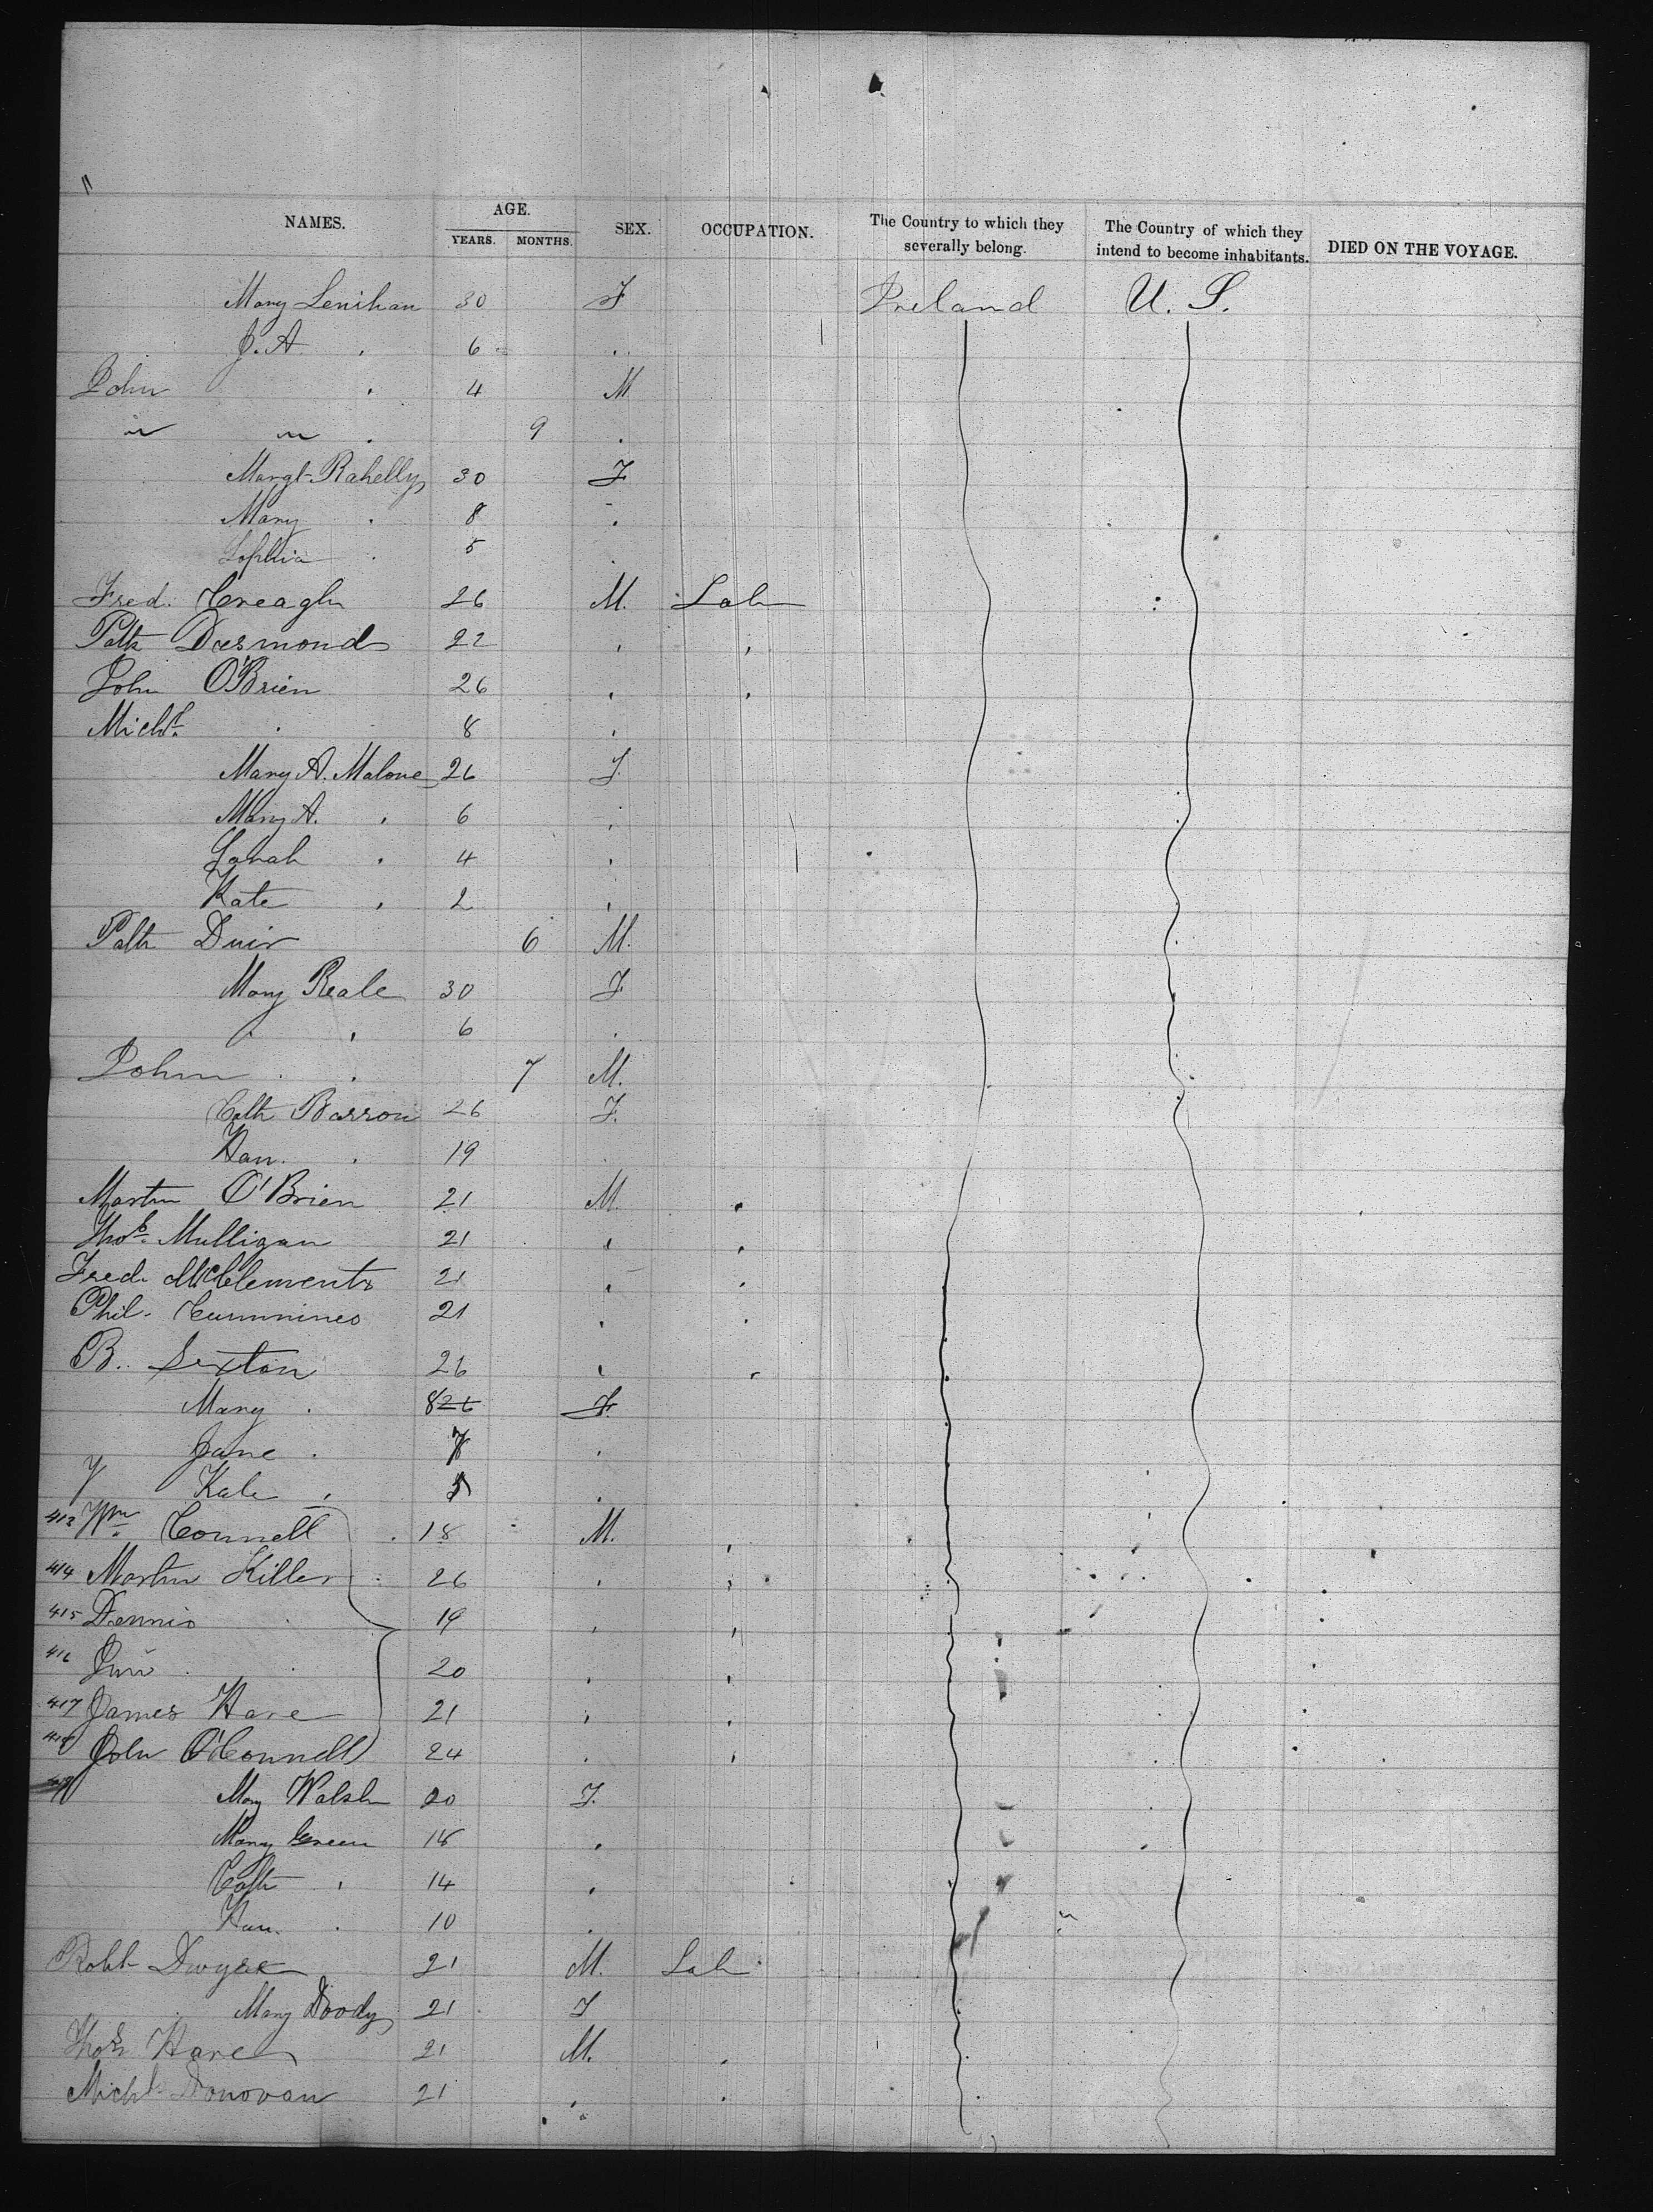 "
NAMES. AGE. YEARS. MONTHS. SEX. OCCUPATION. The Country to which they severally belong. The Country of which they intend to become inhabitants. DIED ON THE VOYAGE.
Mary Lenihan 30 F Ireland U. S.
J. A. . 6 ..
John . 4 M
" " . 9 .
Margt Rahelly 30 F
Mary . 8 .
Sophia . 5
Fred. Creagh 26 M. Lab
Patk Desmond 22 . .
John O'Brien 26 . .
Michl. . 8 .
Mary A. Malone 26 F.
Mary A. . 6 .
Sarah . 4 .
Kate . 2 .
Patk 6 M.
Mary Reale 30 F
. . 6 .
John . . 7 M.
Cath Barron 26 F.
Han. . 19
Martin O'Brien 21 M. .
Thos. Mulligan 21 . .
Fred. McClements 21 . .
Phil. Cummines 21 . .
B. Sexton 26 . .
Mary . 8 26 F.
Jane . 7 .
Kate . .
413 Wm. Connell . 18 M. .
414 Martin Killer 26 . .
415 Dennis . 19 . .
416 . . 20 . .
417 James Hare 21 . .
418 John O'Connell 24 . .
Mary Walsh 20 F.
Mary Green 18 .
Cath . 14 .
Han. . 10 .
Robt Dwyer 21 M. Lab
Mary Doody 21 F
Thos Hare 21 M. .
Michl Donovan 21 . .